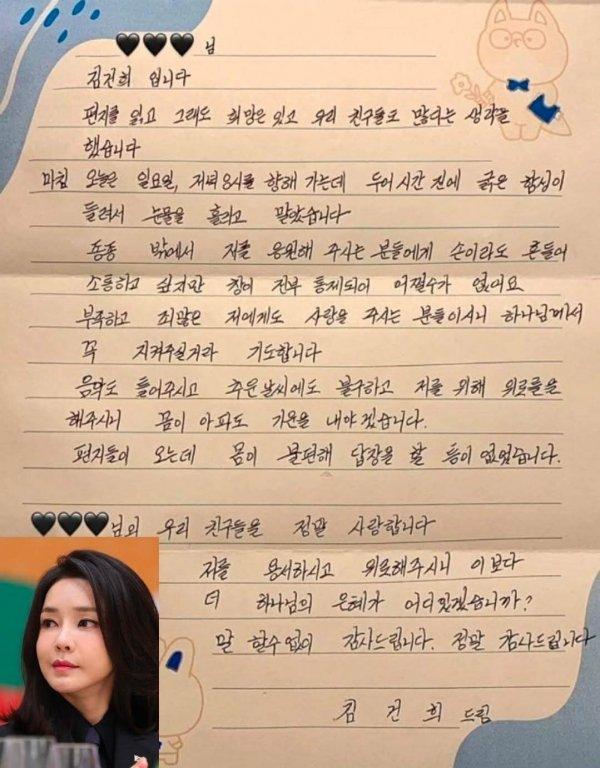 🖤🖤🖤님
김건희 입니다
편지를 읽고 그래도 희망은 있고 우리 친구들도 많다는 생각을
했습니다
마침 오늘은 일요일, 저녁 8시를 향해 가는데 두어시간 전에 굵은 함성이
들려서 눈물을 흘리고 말았습니다
종종 밖에서 저를 응원해 주시는 분들에게 손이라도 흔들어
소통하고 싶지만 창이 전부 통제되어 어쩔수가 없어요
부족하고 죄많은 저에게도 사랑을 주시는 분들이시니 하나님께서
꼭 지켜주실거라 기도합니다
음악도 틀어주시고 추운날씨에도 불구하고 저를 위해 위로들을
해주시니 몸이 아파도 기운을 내야겠습니다.
편지들이 오는데 몸이 불편해 답장을 할 틈이 없었습니다.
🖤🖤🖤님의 우리 친구들을 정말 사랑합니다
저를 용서하시고 위로해주시니 이보다
더 하나님의 은혜가 어디있겠습니까?
말 할수없이 감사드립니다. 정말 감사드립니다
김 건 희 드림